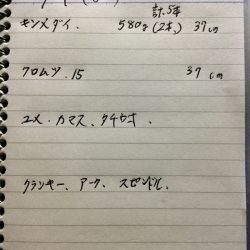 計.5本
キンメダイ. 580g(2本) 37cm
クロムツ.15 37cm
ユメ.カマス、タチウオ.
クランキー、アーク、スピンドル.